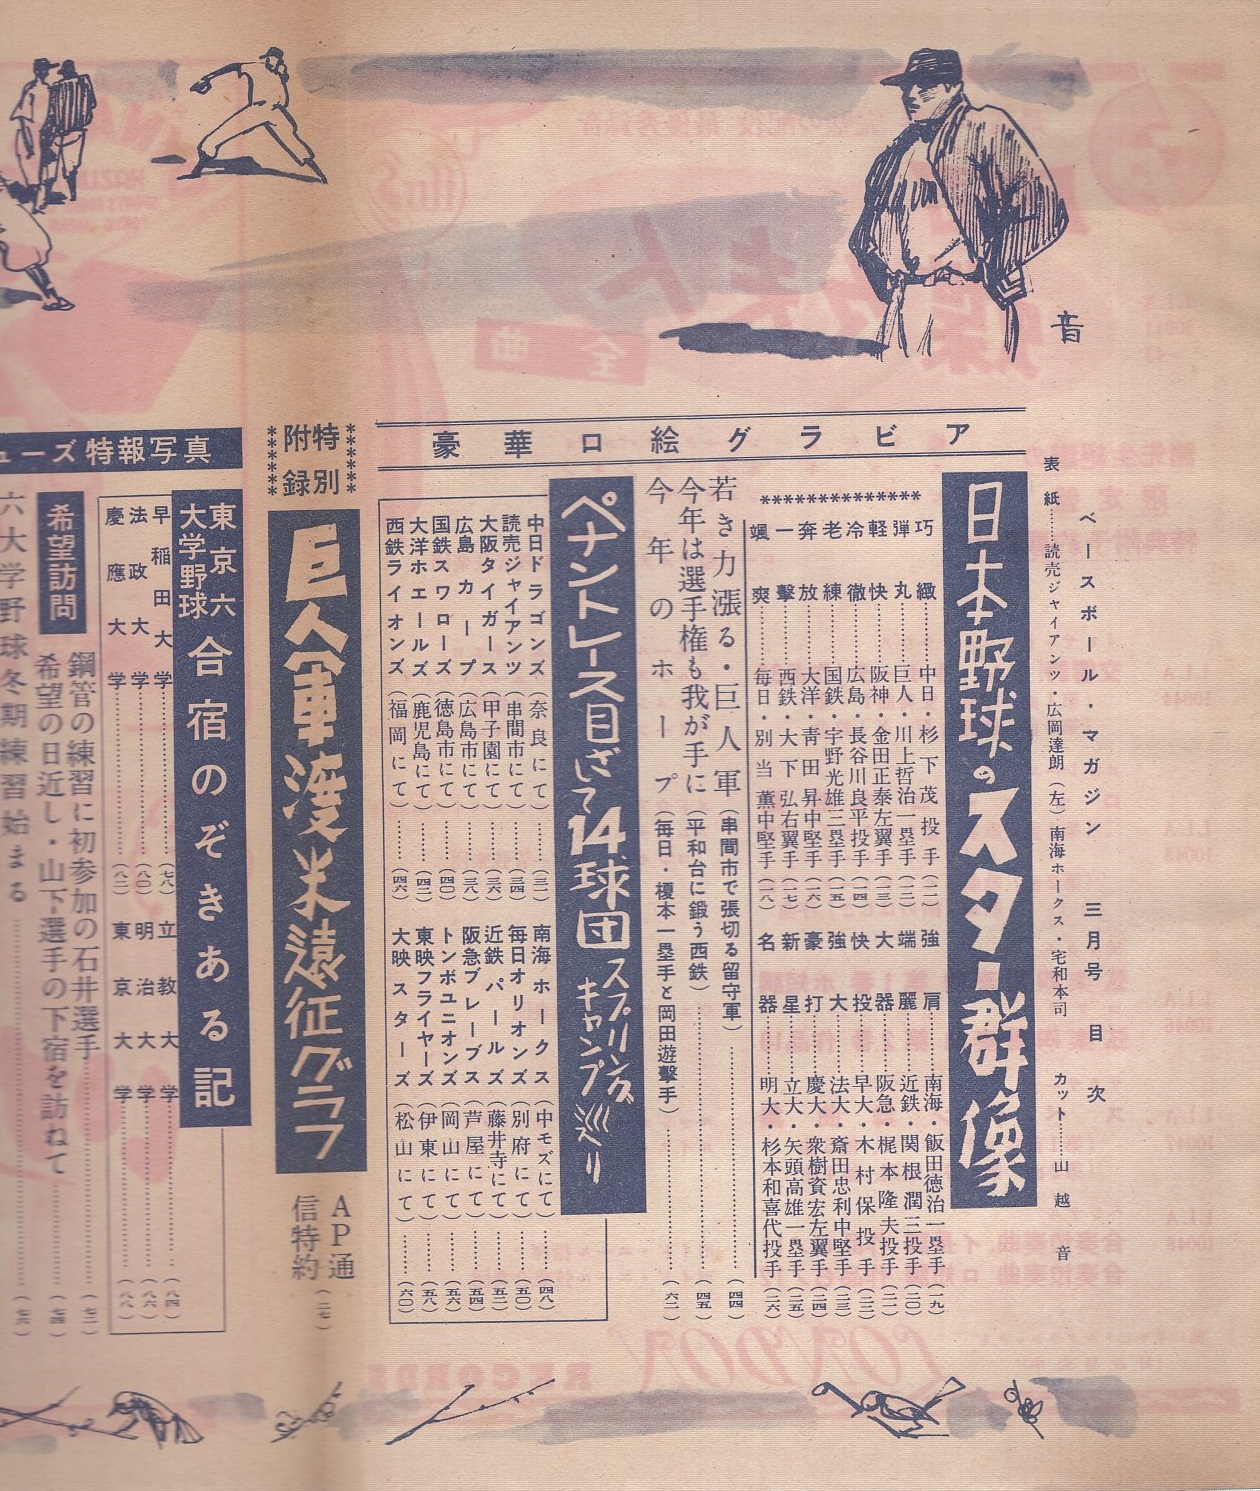 ベースボール・マガジン 三月号 目次
表紙……読売ジャイアンツ・広岡達朗(左)南海ホークス・宅和本司 カット……山越音
音
豪華口絵グラビア
日本野球のスター群像
巧緻……中日・杉下茂投手(一一)
弾丸……巨人・川上哲治一塁手(一二)
軽快……阪神・金田正泰左翼手(一三)
冷徹……広島・長谷川良平投手(一四)
老練……国鉄・宇野光雄三塁手(一五)
奔放……大洋・青田昇中堅手(一六)
一擊……西鉄・大下弘右翼手(一七)
颯爽……毎日・別当薫中堅手(一八)
強肩……南海・飯田徳治一塁手(一九)
端麗……近鉄・関根潤三投手(二〇)
大器……阪急・梶本隆夫投手(二一)
快投……早大・木村保投手(二二)
強大……法大・斎田忠利中堅手(二三)
豪打……慶大・衆樹資宏左翼手(二四)
新星……立大・矢頭高雄一塁手(二五)
名器……明大・杉本和喜代投手(二六)
若き力漲る・巨人軍(串間市で張切る留守軍)……(四四)
今年は選手権も我が手に(平和台に鍛う西鉄)……(四五)
今年のホープ(毎日・榎本一塁手と岡田遊擊手)……(六二)
ペナントレース目ざして14球団スプリング・キャンプ巡り
中日ドラゴンズ(奈良にて)……(三二)
読売ジャイアンツ(串間市にて)……(三四)
大阪タイガース(甲子園にて)……(三六)
広島カープ(広島市にて)……(三八)
国鉄スワローズ(徳島市にて)……(四〇)
大洋ホエールズ(鹿児島にて)……(四二)
西鉄ライオンズ(福岡にて)……(四六)
南海ホークス(中モズにて)……(四八)
毎日オリオンズ(別府にて)……(五〇)
近鉄パールズ(藤井寺にて)……(五二)
阪急ブレーブス(芦屋にて)……(五四)
トンボユニオンズ(岡山にて)……(五六)
東映フライヤーズ(伊東にて)……(五八)
大映スターズ(松山にて)……(六〇)
特別附録
巨人軍渡米遠征グラフ
AP通信特約(二七)
ューズ特報写真
東京六大学野球合宿のぞきある記
早稲田大学……(七八)
法政大学……(八〇)
慶應大学……(八二)
立教大学……(八四)
明治大学……(八六)
東京大学……(八八)
希望訪問
鋼管の練習に初参加の石井選手……(七二)
希望の日近し・山下選手の下宿を訪ねて……(七四)
六大学野球冬期練習始まる……(七六)